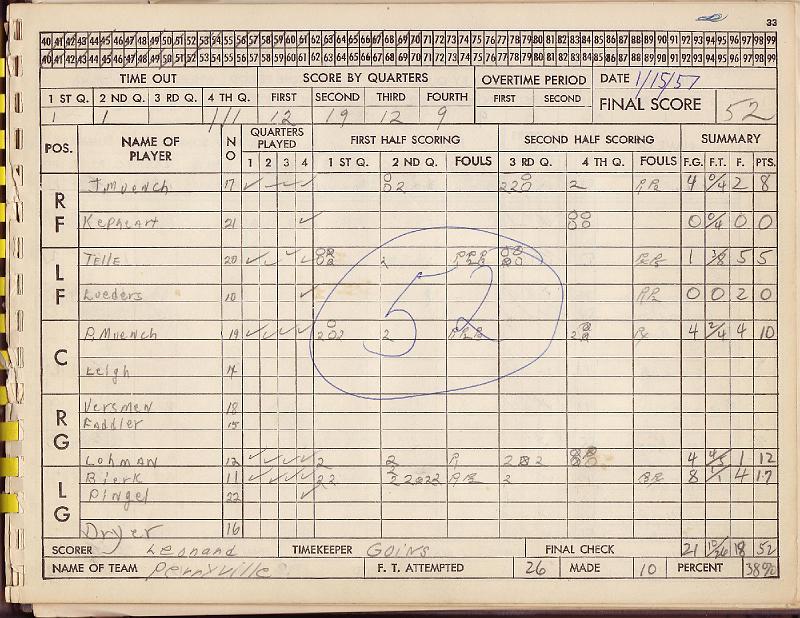 33
40 41 42 43 44 45 46 47 48 49 50 51 52 53 54 55 56 57 58 59 60 61 62 63 64 65 66 67 68 69 70 71 72 73 74 75 76 77 78 79 80 81 82 83 84 85 86 87 88 89 90 91 92 93 94 95 96 97 98 99
40 41 42 43 44 45 46 47 48 49 50 51 52 53 54 55 56 57 58 59 60 61 62 63 64 65 66 67 68 69 70 71 72 73 74 75 76 77 78 79 80 81 82 83 84 85 86 87 88 89 90 91 92 93 94 95 96 97 98 99
TIME OUT SCORE BY QUARTERS OVERTIME PERIOD DATE 1/15/57
1 ST Q. 2 ND Q. 3 RD Q. 4 TH Q. FIRST SECOND THIRD FOURTH FIRST SECOND FINAL SCORE 52
1 1 111 12 19 12 9
POS. NAME OF PLAYER NO QUARTERS PLAYED FIRST HALF SCORING SECOND HALF SCORING SUMMARY
1 2 3 4 1 ST Q. 2 ND Q. FOULS 3 RD Q. 4 TH Q. FOULS F.G. F.T. F. PTS.
RF J. Muench 7 ✓ 02 220 2 4 0/4 2 8
Kepheart 21 ✓ 00 00 0 0/4 0 0
LF Telle 20 2 1 3/8 5 5
Lueders 10 0 0 2 0
C P. Muench 19 2 4 2/4 4 10
Leigh
RG Versmen 18
Faddler 15
Lohman 12 2 2 4 4/5 1 12
LG Bierk 11 22 2 8 1/1 4 17
Pingel 22 ✓
Dryer 16
52
SCORER Leonard TIMEKEEPER Goins FINAL CHECK 21 10/26 18 52
NAME OF TEAM Perryville F. T. ATTEMPTED 26 MADE 10 PERCENT 38%